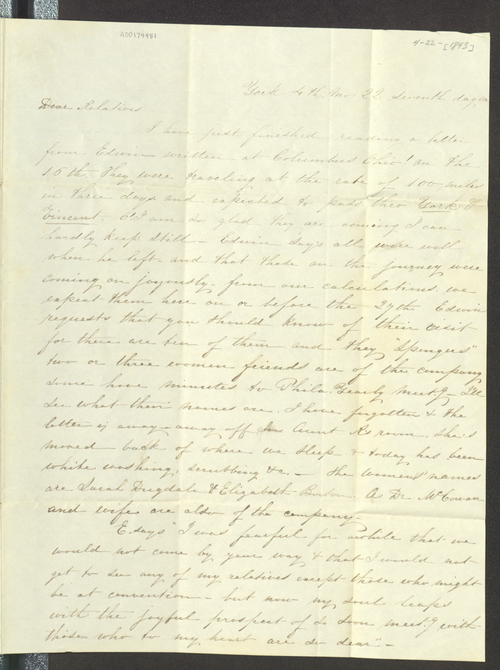 A00174481
4-22-[1843]
York 4th Mo 22 seventh day
Dear Relatives
I have just finished reading a letter
from Edwin written at Columbus Ohio! on the
15th. They were traveling at the rate of 100 miles
in three days and expected to pass thro
Vincent. O! I am so glad they are coming I can
hardly keep still - Edwin says all were well
when he left and that those on the journey were
coming on joyously. from our calculations we
expect them here on or before the 29th Edwin
requests that you should know of their visit
for there are ten of them and they "
two or three women friends are of the company
some have minutes to Phila. Yearly meetg - I'll
see what their names are. I have forgotten & the
letter is away - away off in Aunt K's room. She's
moved back of where we sleep & today has been
white washing, scrubbing &c. - the women's names
are Sarah Dugdale & Elizabeth As Dr. McCowan
and wife are also of the company -
E. says "I was fearful for awhile that we
would not come by your way & that I would not
get to see any of my relatives except those who might
be at convention - but now my soul leaps
with the joyful prospect of so soon meetg with
those who to my heart are so dear" -